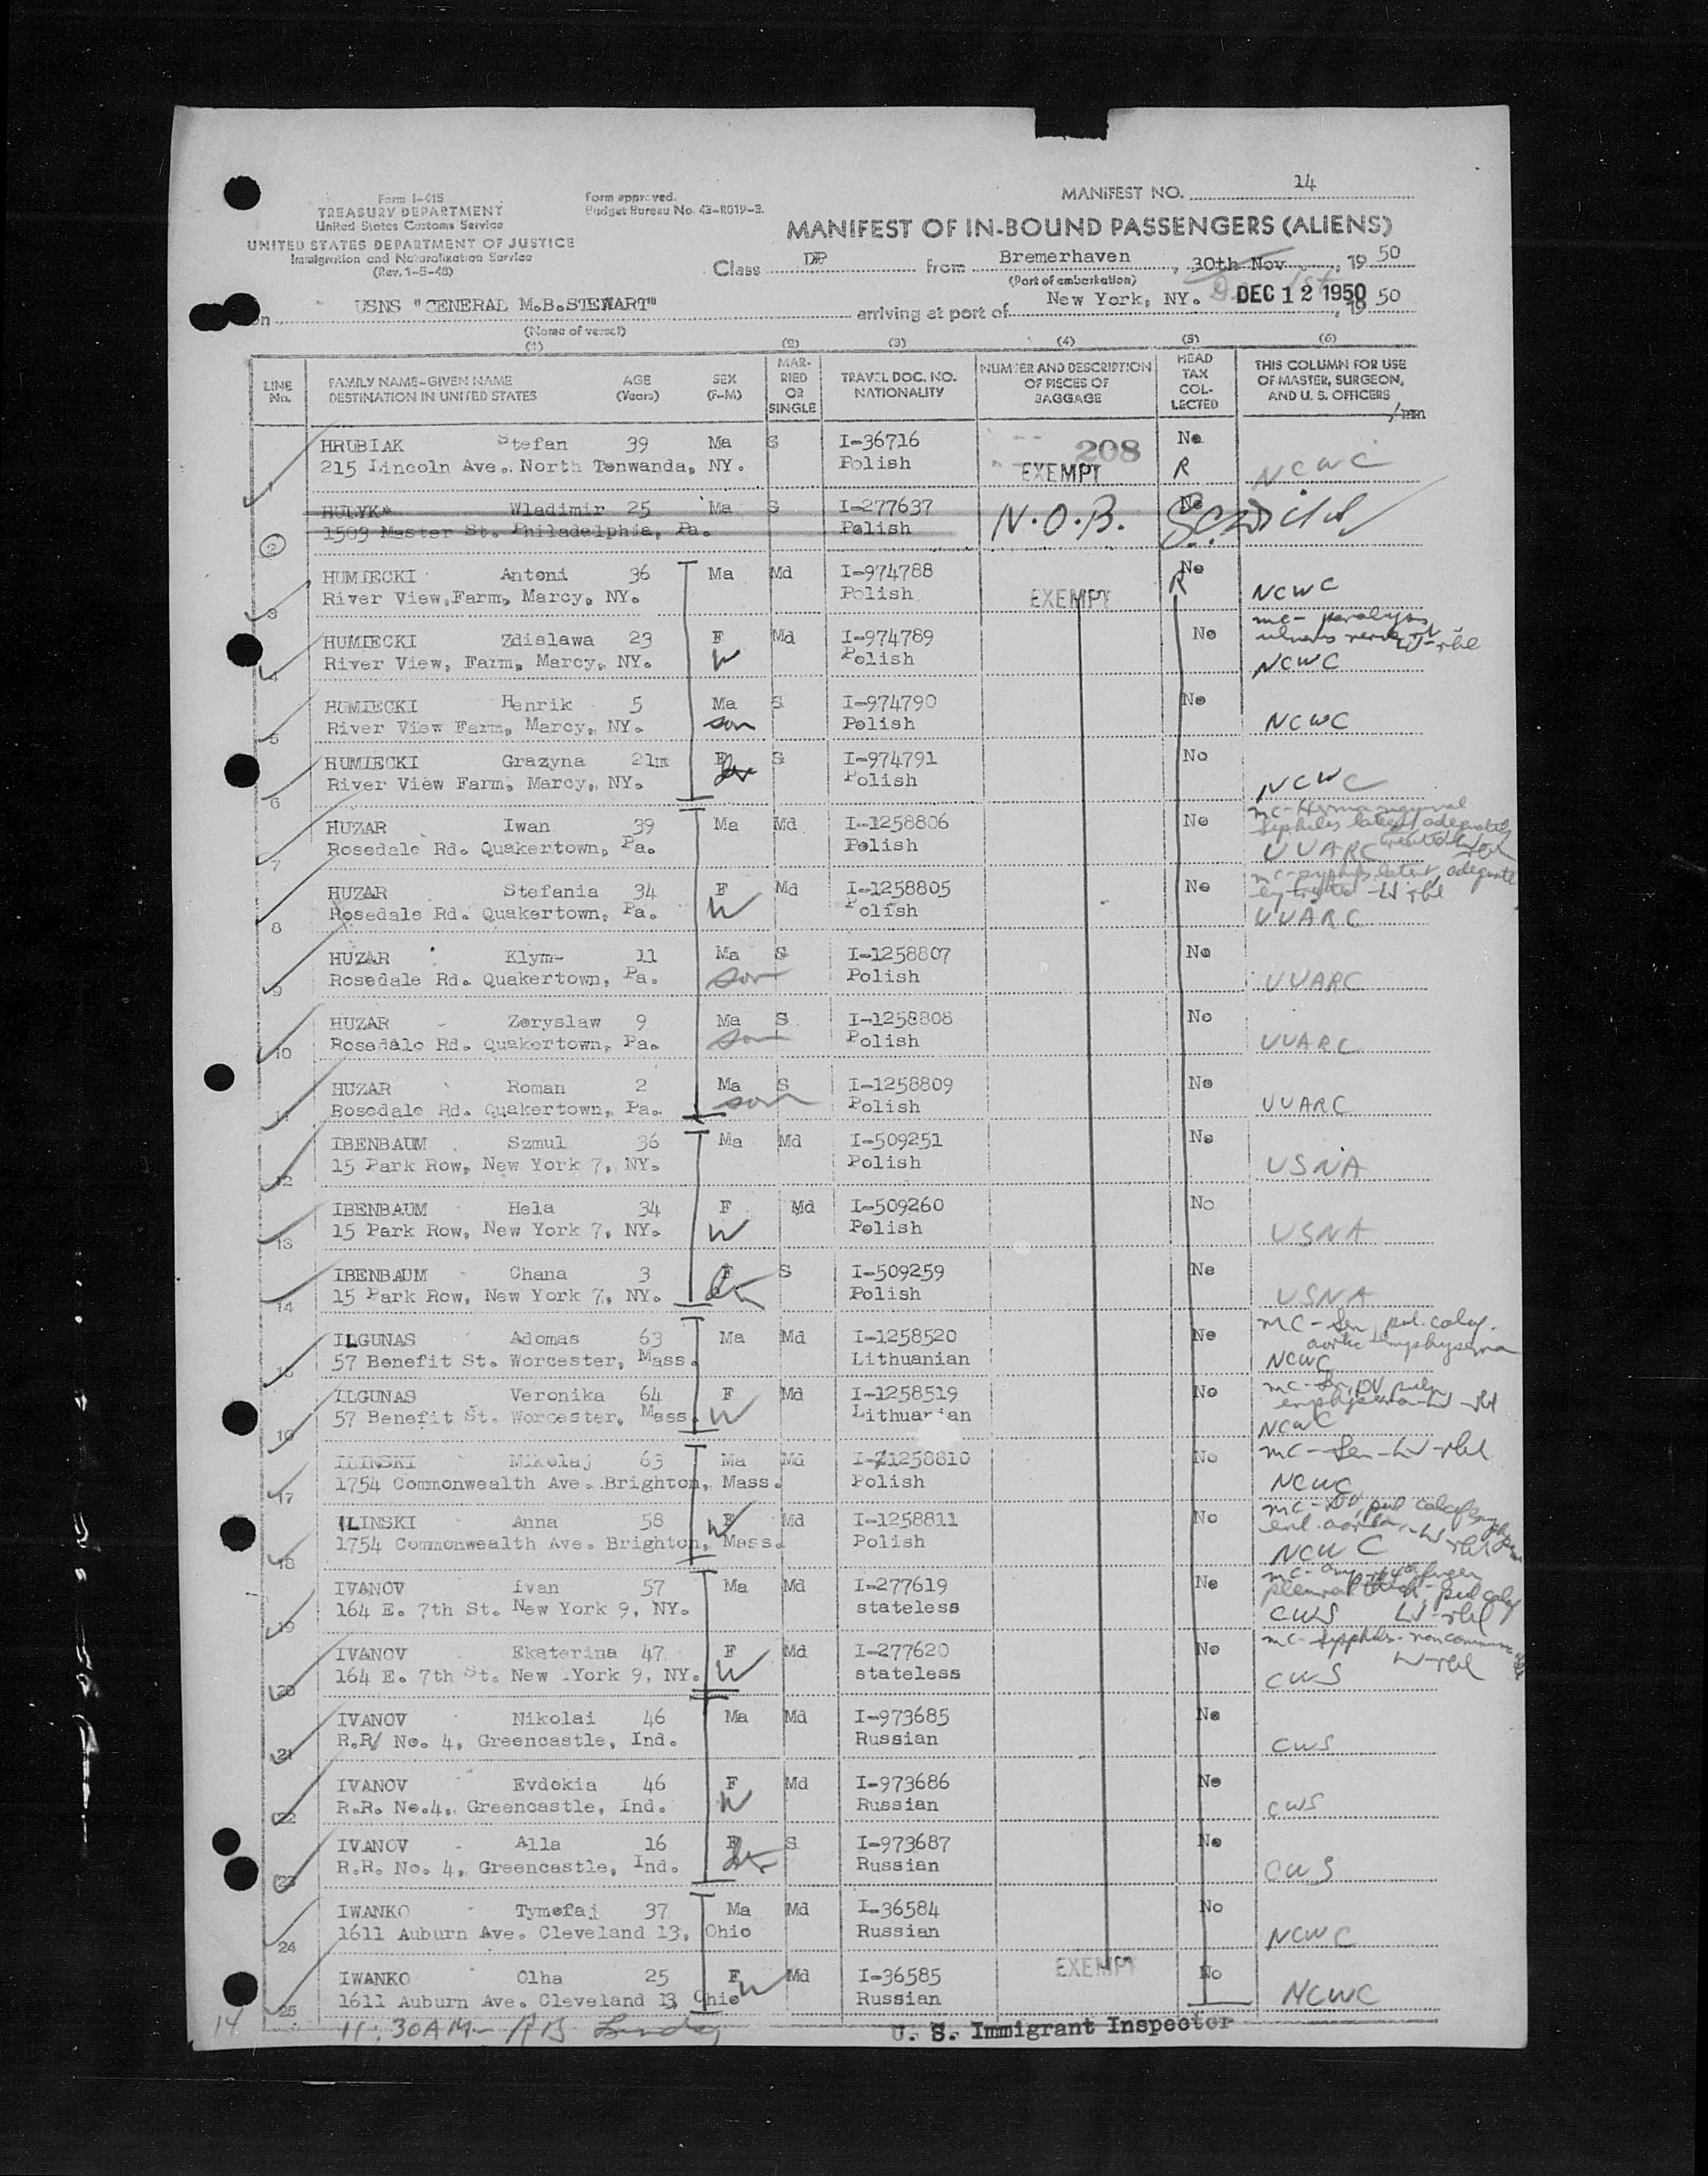 MANIFEST NO. 14
Form I-415
TREASURY DEPARTMENT
United States Customs Service
UNITED STATES DEPARTMENT OF JUSTICE
Immigration and Naturalization Service
(Rev. 1-5-48)
Form approved.
Budget Bureau No. 43-R019-3.
MANIFEST OF IN-BOUND PASSENGERS (ALIENS)
Class DP from Bremerhaven, 30th Nov, 19 50
(Port of embarkation)
on USNS "GENERAL M.B.STEWART" arriving at port of New York, NY. DEC 12 1950 19 50
(Name of vessel)
(1) (2) (3) (4) (5) (6)
LINE No.
FAMILY NAME-GIVEN NAME
DESTINATION IN UNITED STATES
AGE (Years)
SEX (F-M)
MARRIED OR SINGLE
TRAVEL DOC. NO.
NATIONALITY
NUMBER AND DESCRIPTION OF PIECES OF BAGGAGE
HEAD TAX COLLECTED
THIS COLUMN FOR USE OF MASTER, SURGEON, AND U. S. OFFICERS
/mm
1 HRUBIAK Stefan 39 Ma S I-36716 208 No
215 Lincoln Ave. North Tonwanda, NY. Polish EXEMPT R NCWC
2 HULYK* Wladimir 25 Ma S I-277637 N.O.B. No
1509 Master St. Philadelphia, Pa. Polish
3 HUMIECKI Antoni 36 Ma Md I-974788 No
River View,Farm, Marcy, NY. Polish EXEMPT R NCWC
4 HUMIECKI Zdislawa 23 F Md I-974789 No mc- paralysis ulnar nerve
River View, Farm, Marcy, NY. W Polish NCWC
5 HUMIECKI Henrik 5 Ma S I-974790 No
River View Farm, Marcy, NY. son Polish NCWC
6 HUMIECKI Grazyna 21m F S I-974791 No
River View Farm, Marcy, NY. Polish NCWC
7 HUZAR Iwan 39 Ma Md I-1258806 No mc- Hernia inguinal syphilis latent adequately treated
Rosedale Rd. Quakertown, Pa. Polish UUARC
8 HUZAR Stefania 34 F Md I-1258805 No mc- syphilis latent, adequately treated
Rosedale Rd. Quakertown, Pa. W Polish UUARC
9 HUZAR Klym- 11 Ma S I-1258807 No
Rosedale Rd. Quakertown, Pa. son Polish UUARC
10 HUZAR Zoryslaw 9 Ma S I-1258808 No
Rosedale Rd. Quakertown, Pa. son Polish UUARC
11 HUZAR Roman 2 Ma S I-1258809 No
Rosedale Rd. Quakertown, Pa. son Polish UUARC
12 IBENBAUM Szmul 36 Ma Md I-509251 No
15 Park Row, New York 7, NY. Polish USNA
13 IBENBAUM Hela 34 F Md I-509260 No
15 Park Row, New York 7, NY. W Polish USNA
14 IBENBAUM Chana 3 F S I-509259 No
15 Park Row, New York 7, NY. Polish USNA
15 ILGUNAS Adomas 63 Ma Md I-1258520 No mc- Sen, pul. calcf. aortic emphysema
57 Benefit St. Worcester, Mass. Lithuanian NCWC
16 ILGUNAS Veronika 64 F Md I-1258519 No mc- Sen, DV emphysema
57 Benefit St. Worcester, Mass. W Lithuanian NCWC
17 ILINSKI Mikolaj 63 Ma Md I-1258810 No mc- Sen
1754 Commonwealth Ave. Brighton, Mass. Polish NCWC
18 ILINSKI Anna 58 F Md I-1258811 No mc- DV, pul calcf
1754 Commonwealth Ave. Brighton, Mass. W Polish NCWC
19 IVANOV Ivan 57 Ma Md I-277619 No
164 E. 7th St. New York 9, NY. stateless CWS
20 IVANOV Ekaterina 47 F Md I-277620 No mc- Syphilis
164 E. 7th St. New York 9, NY. W stateless CWS
21 IVANOV Nikolai 46 Ma Md I-973685 No
R.R/ No. 4, Greencastle, Ind. Russian CWS
22 IVANOV Evdokia 46 F Md I-973686 No
R.R. No.4, Greencastle, Ind. W Russian CWS
23 IVANOV Alla 16 F S I-973687 No
R.R. No. 4, Greencastle, Ind. Russian CWS
24 IWANKO Tymofaj 37 Ma Md I-36584 No
1611 Auburn Ave. Cleveland 13, Ohio Russian NCWC
25 IWANKO Olha 25 F W Md I-36585 EXEMPT No
1611 Auburn Ave. Cleveland 13 Ohio Russian NCWC
14 11:30AM-
U. S. Immigrant Inspector